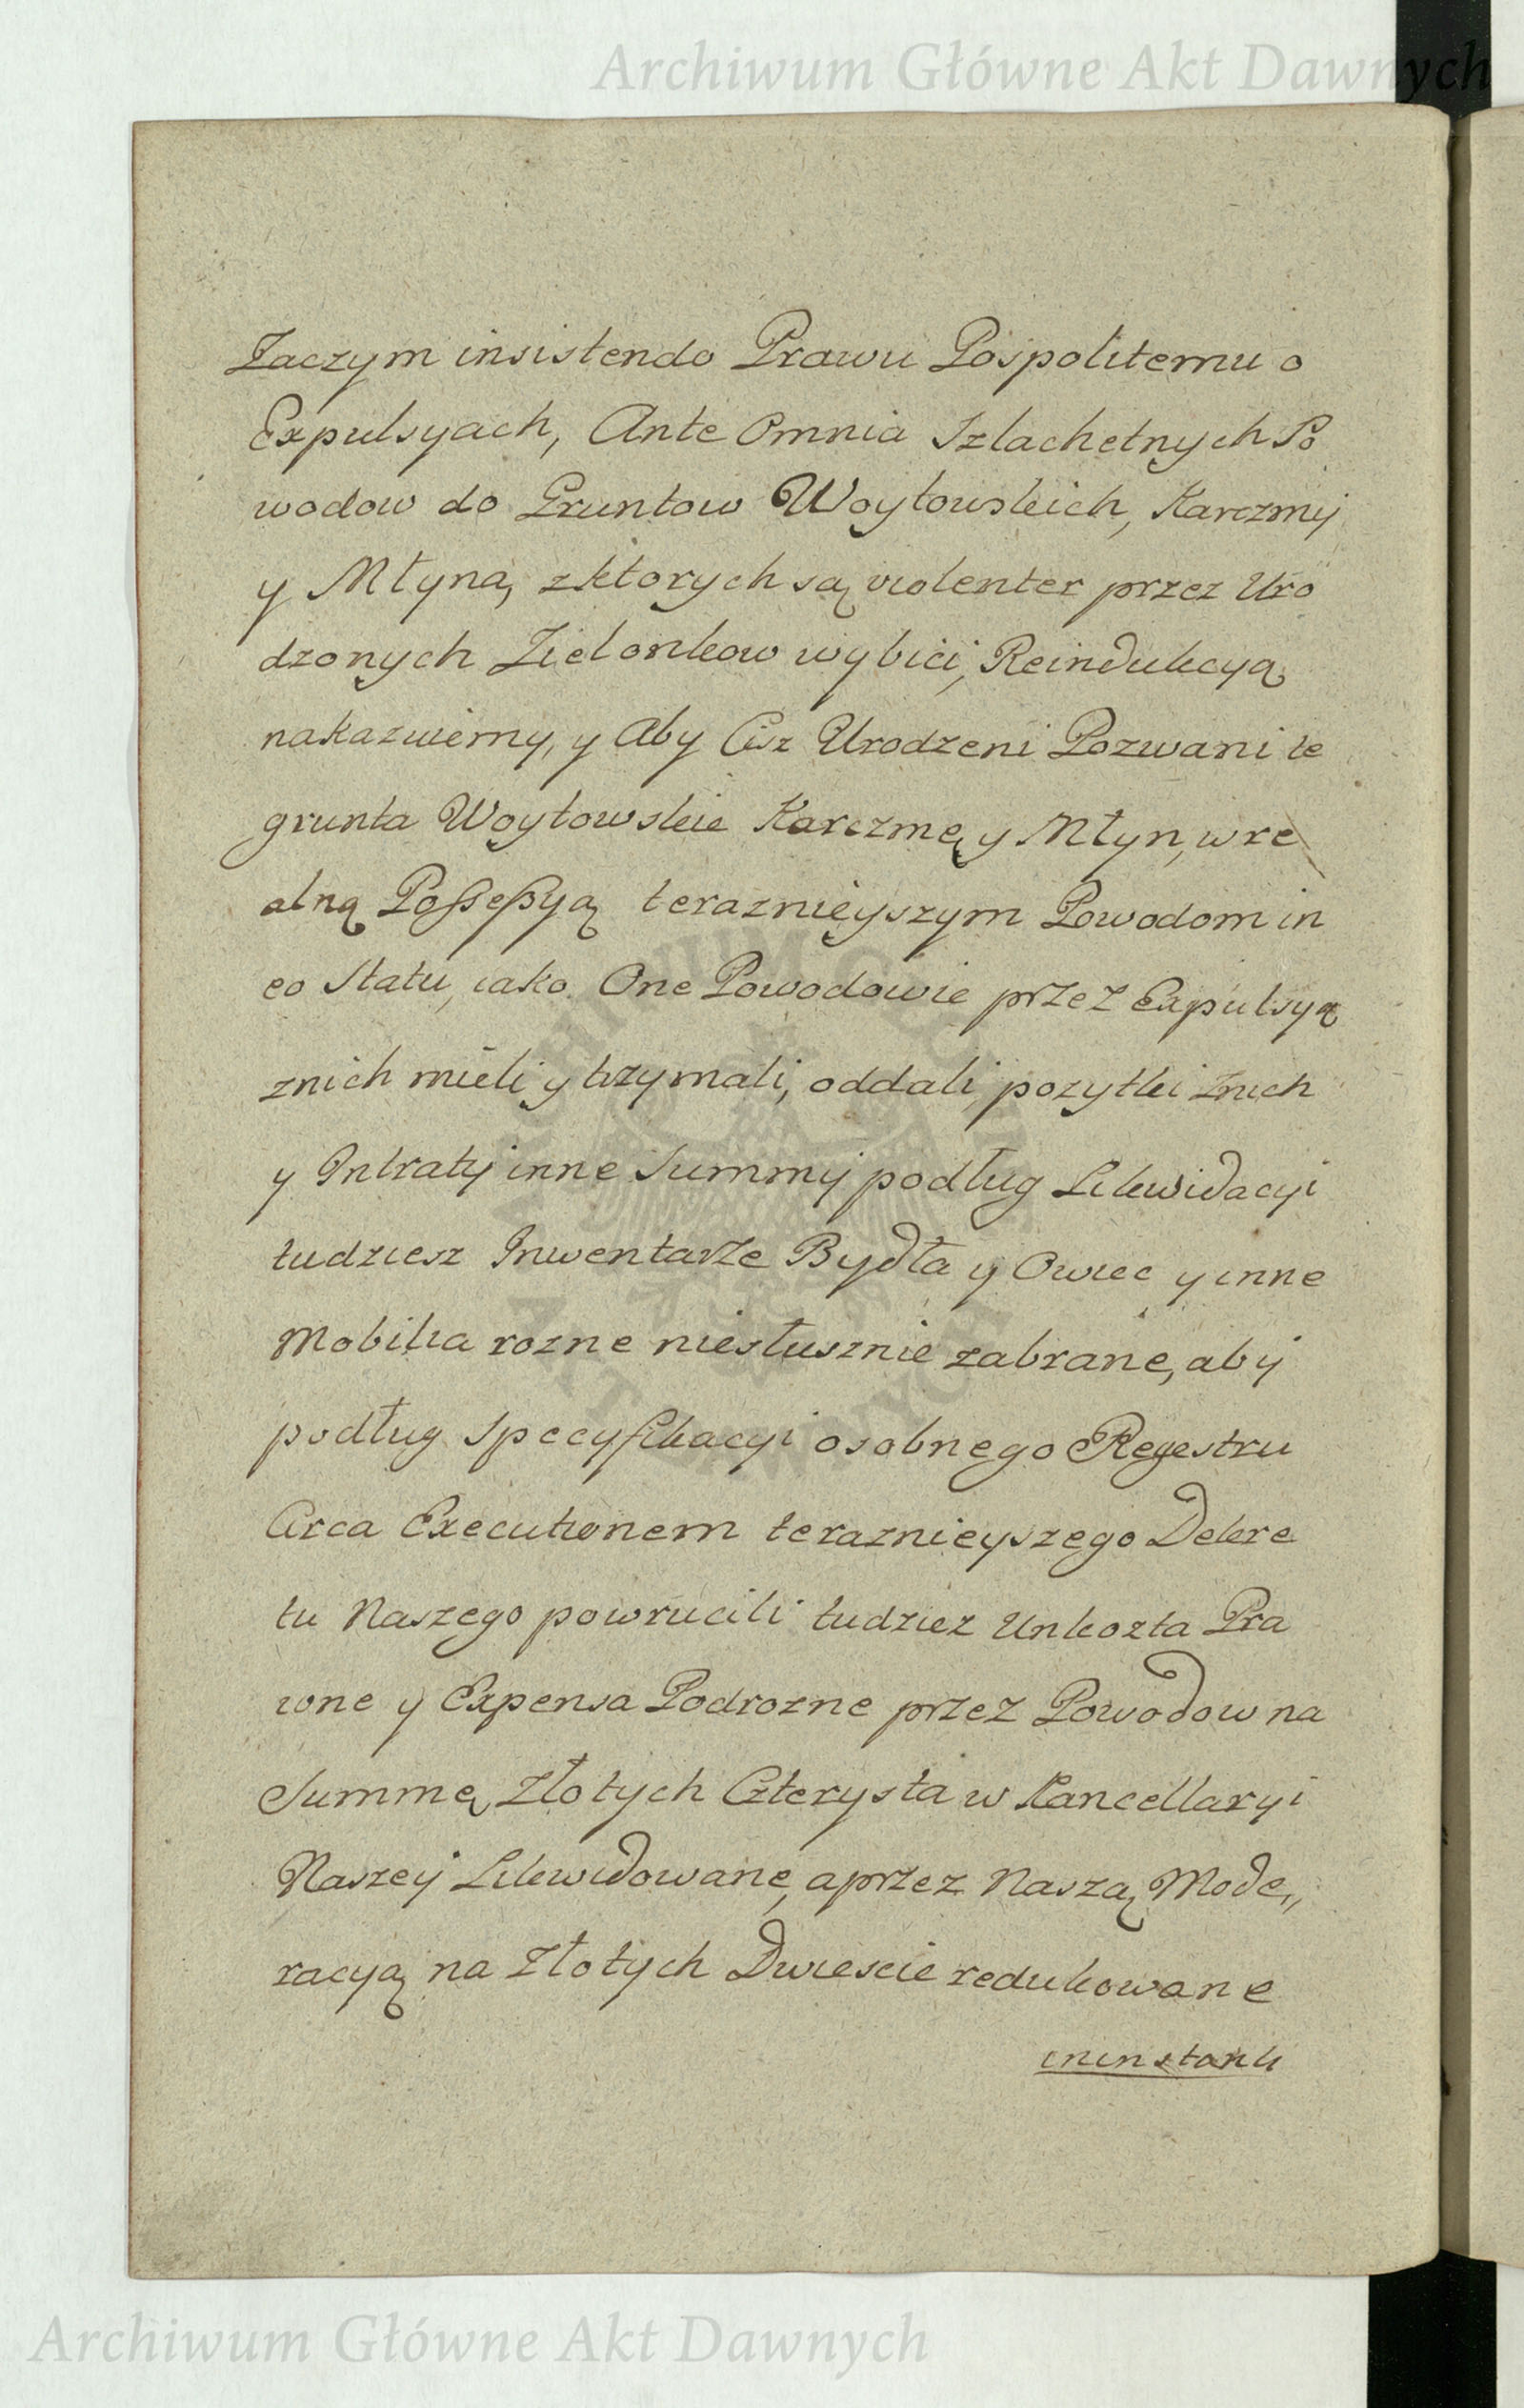 Archiwum Główne Akt Dawnych
Zaczym insistendo Prawu Pospolitemu o
Expulsyach, Ante Omnia Szlachetnych Po
wodow do Gruntow Woytowskich, Karczmy
y Młyna, z ktorych są violenter przez Uro
dzonych Zielonkow wybici, Reindukcyą
nakazuiemy, y Aby Ciż Urodzeni Pozwani te
grunta Woytowskie Karczmę y Młyn, w re
alną Possessyą teraznieyszym Powodom in
eo Statu, iako One Powodowie przez Expulsyą
znich mieli y trzymali, oddali, pozytki znich
y Intraty inne Summy podług Likwidacyi
tudziesz Inwentarze Bydła y Owiec y inne
Mobilia rozne niesłusznie zabrane, aby
podług specyfikacyi osobnego Regestru
Circa Executionem teraznieyszego Dekre
tu Naszego powrucili tudziez Unkozta Pra
wne y Expensa Podrozne przez Powodow na
Summę Złotych Czterysta w Kancellaryi
Naszey Likwidowane, a przez Naszą Mode„
racyą na Złotych Dwiescie redukowane
ininstanti
Archiwum Główne Akt Dawnych